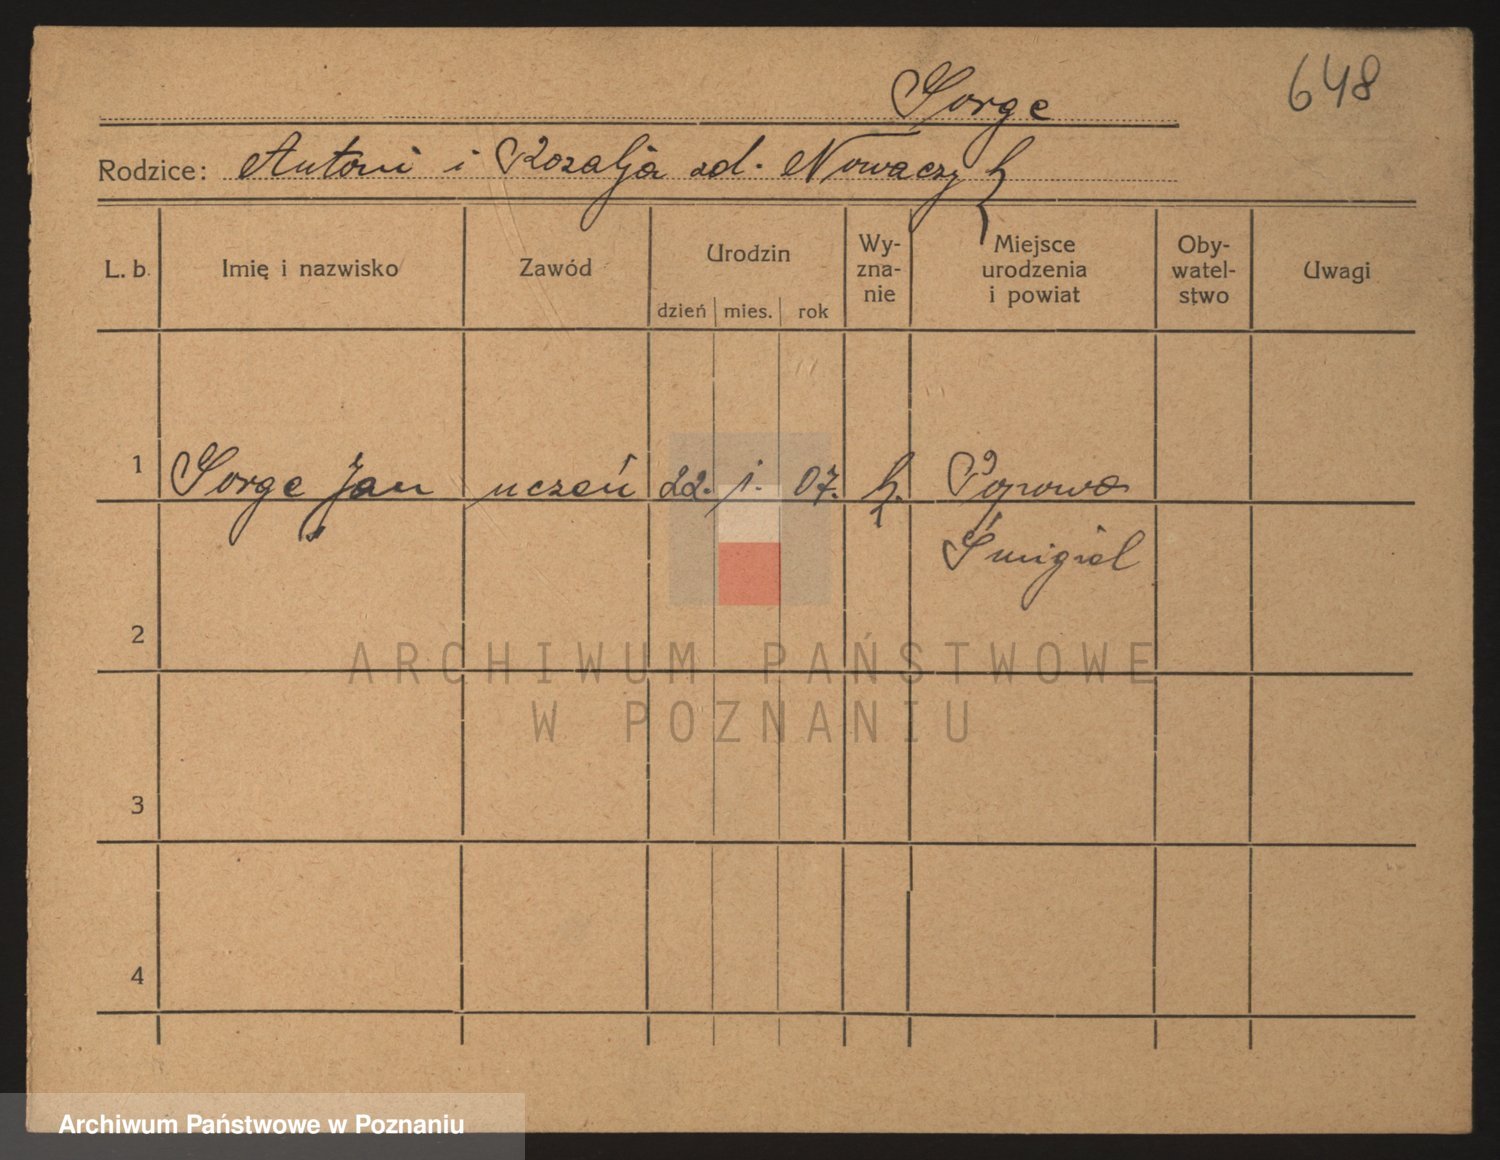 Sorge
648
Rodzice: Antoni i Rozalja zd. Nowaczyk
L. b. Imię i nazwisko Zawód Urodzin Wy-
zna-
nie Miejsce
urodzenia
i powiat Oby-
watel-
stwo Uwagi
dzień mies. rok
1 Sorge Jan uczeń 22. 1. 07. k. Popowo
Śmigiel
2
ARCHIWUM PAŃSTWOWE
W POZNANIU
3
4
Archiwum Państwowe w Poznaniu